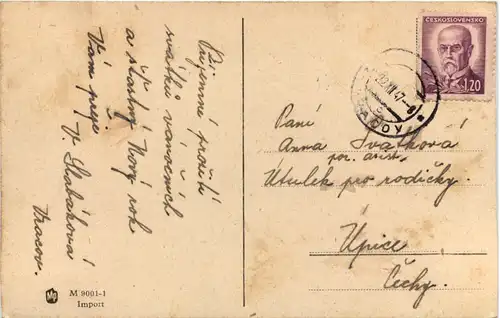 Příjemné prožití
svátků vánočních
a šťastný Nový rok
Vám přeje
V. Slabáková
Vracov.
M 9001-1
Import
ČESKOSLOVENSKO
1.20
XII 47
Paní
Anna Svatková
por. asist.
Útulek pro rodičky.
Úpice
Čechy.